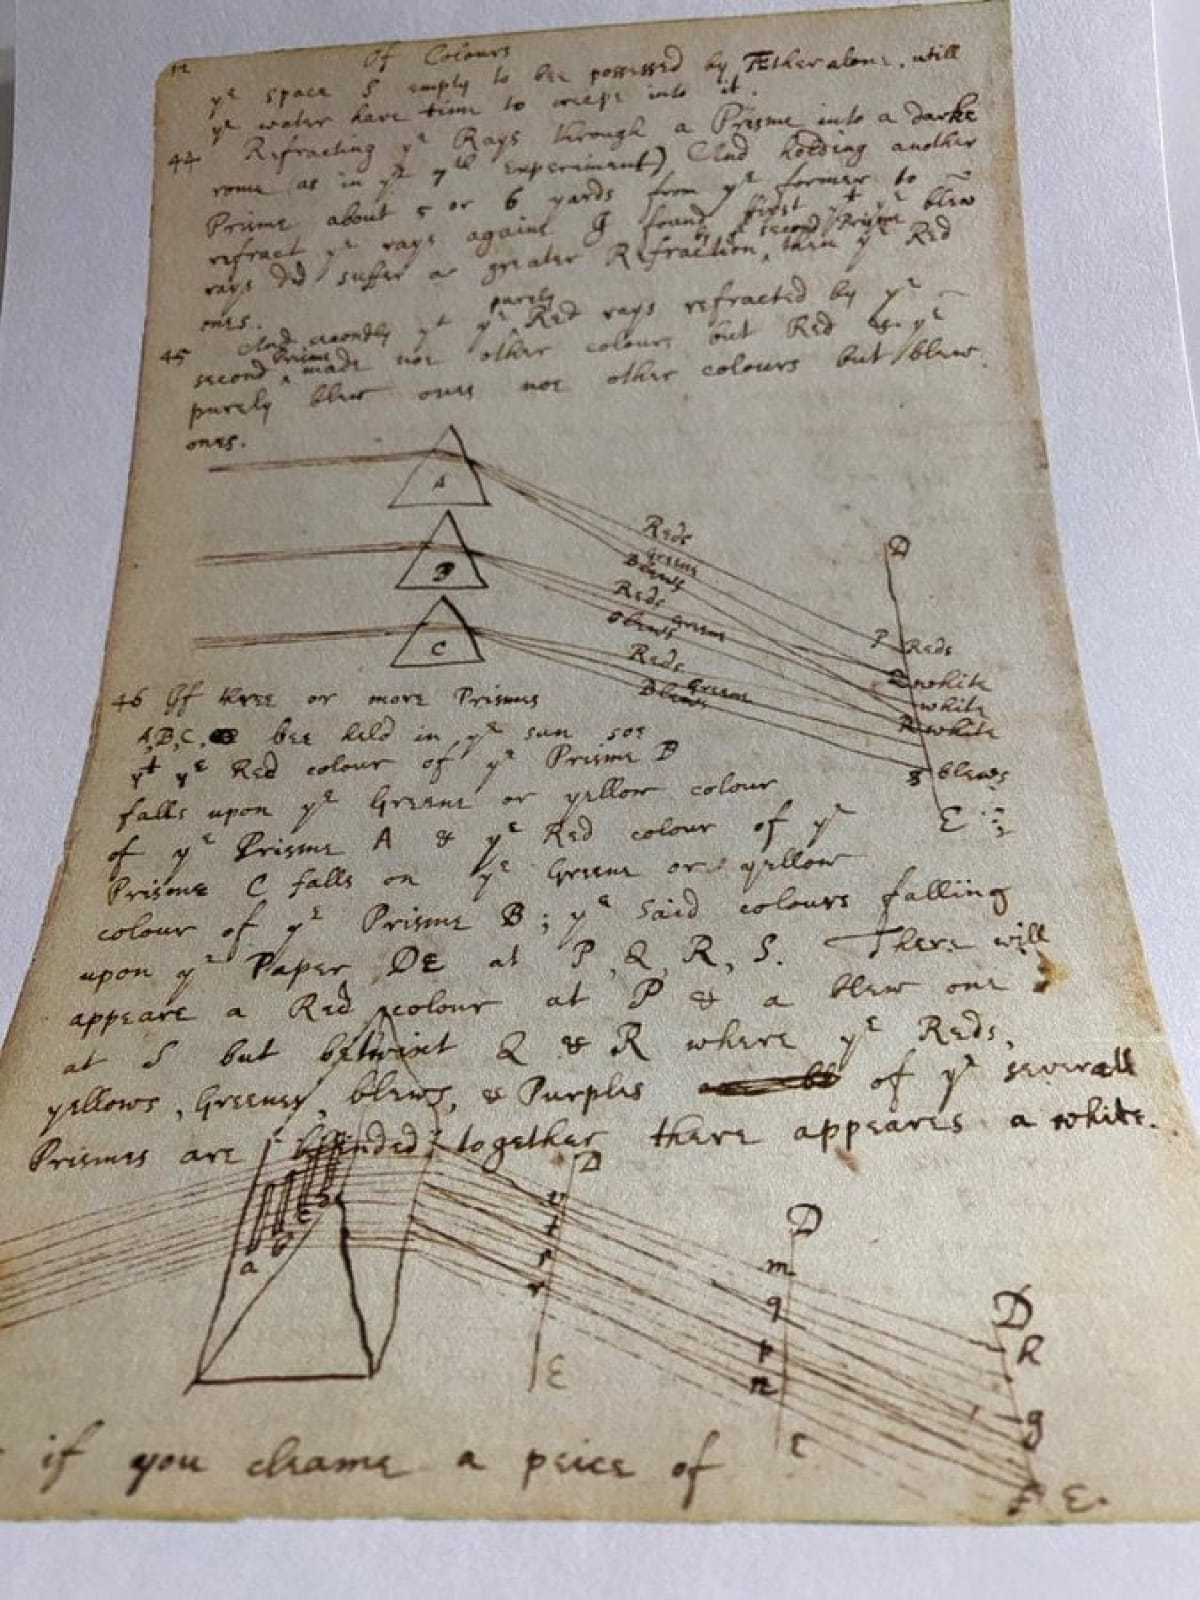 12 Of Colours
yᵉ space S empty to bee possessed by Æther alone, will
yᵉ water have time to creepe into it.
44 Refracting yᵉ Rays through a Prisme into a darke
rome (as in yᵉ 7ᵗʰ experiment) And holding another
Prisme about 5 or 6 yards from yᵉ former to
refract yᵉ rays againe I found first yᵗ yᵉ blew
rays did suffer a greater Refraction by yᵉ second Prisme, then yᵉ Red
ones.
45 And secondly yᵗ yᵉ purely Red rays refracted by yᵉ
second Prisme made noe other colours but Red & yᵉ
purely blew ones noe other colours but blew
ones.
A
Reds
Greens
Blews
D
B
Reds
Greens
blews
C
Reds
Greens
Blews
P Reds
Q white
white
R white
S blews
E
46 If three or more Prismes
A,B,C, bee held in yᵉ sun soe
yᵗ yᵉ Red colour of yᵉ Prisme B
falls upon yᵉ Greene or yellow colour
of yᵉ Prisme A & yᵉ Red colour of yᵉ
Prisme C falls on yᵉ Greene or yellow
colour of yᵉ Prisme B; yᵉ said colours falling
upon yᵉ Paper DE at P, Q, R, S. There will
appeare a Red colour at P & a blew one
at S but betwixt Q & R where yᵉ Reds,
yellows, Greenes, blews, & Purples of yᵉ severall
Prismes are blended together there appeares a white.
a b c
D
v
t
s
r
E
D
m
q
p
n
E
D
R
g
E.
if you cleane a peice of